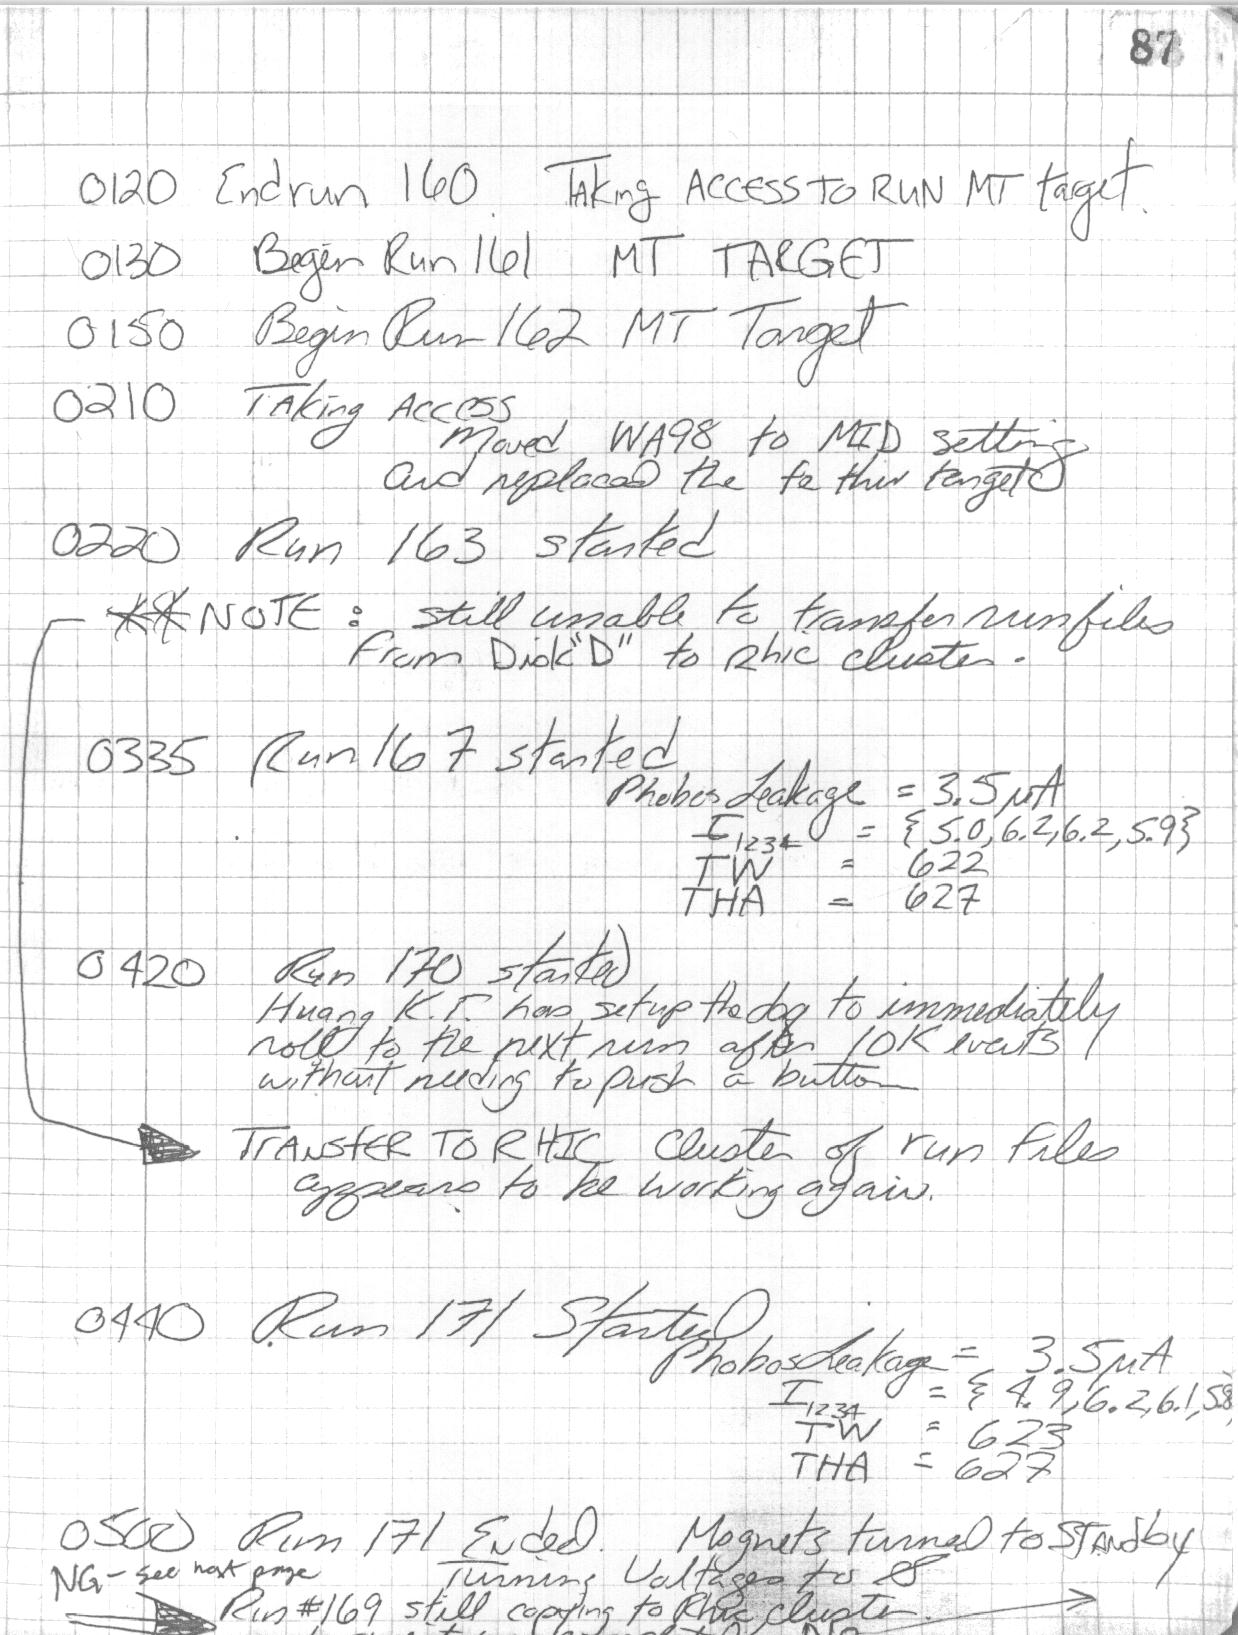 87
0120 Endrun 160. Taking ACCESS TO RUN MT target.
0130 Begin Run 161 MT TARGET
0150 Begin Run 162 MT Target
0210 Taking Access
Moved WA98 to MID setting
and replaced the fe thin target
0220 Run 163 started
** NOTE : still unable to transfer runfiles
From Disk "D" to Rhic cluster.
0335 Run 167 started
Phobos Leakage = 3.5 μA
I1234 = {5.0, 6.2, 6.2, 5.9}
TW = 622
THA = 627
0420 Run 170 started
Huang K.T. has setup the daq to immediately
roll to the next run after 10K events
without needing to push a button
TRANSFER TO RHIC Cluster of run files
appears to be working again.
0440 Run 171 Started
Phobos Leakage = 3.5 μA
I1234 = { 4.9, 6.2, 6.1, 5.8,
TW = 623
THA = 627
0500 Run 171 Ended. Magnets turned to STANDby
NG - see next page Turning Voltages to Ø
Run #169 still copying to Rhic cluster.